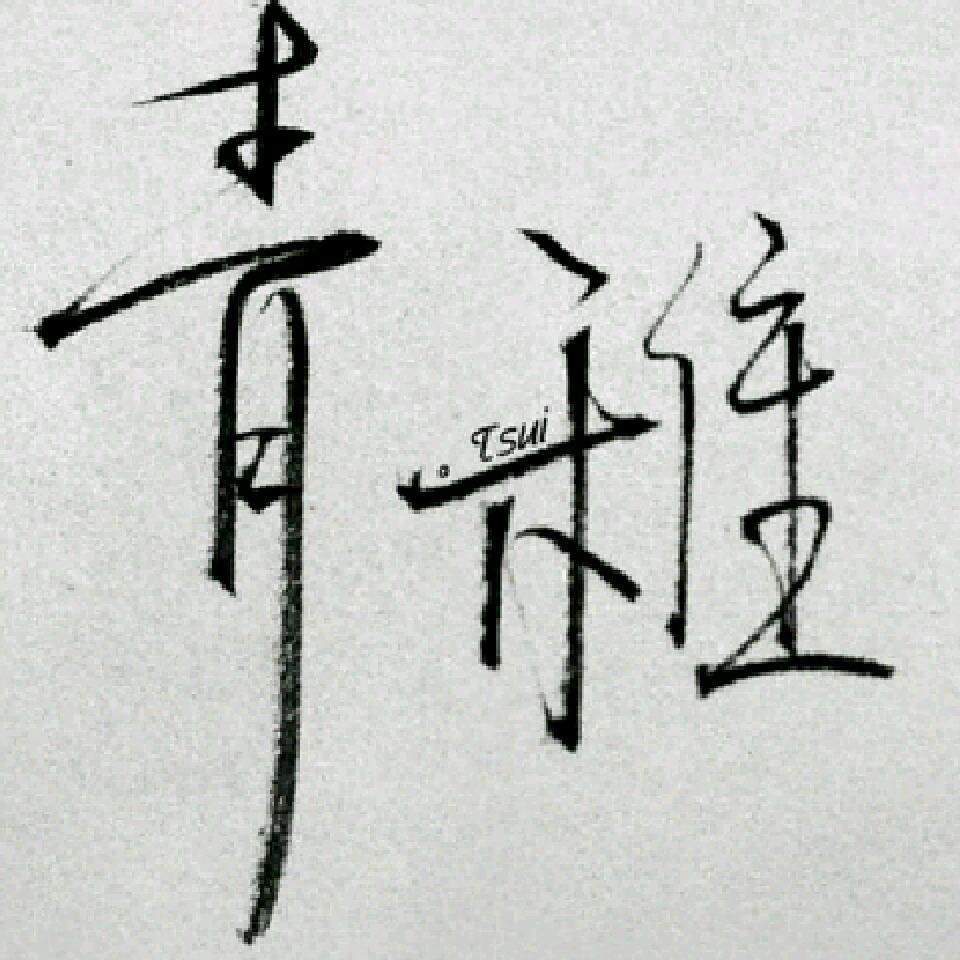 青稚
Tsui